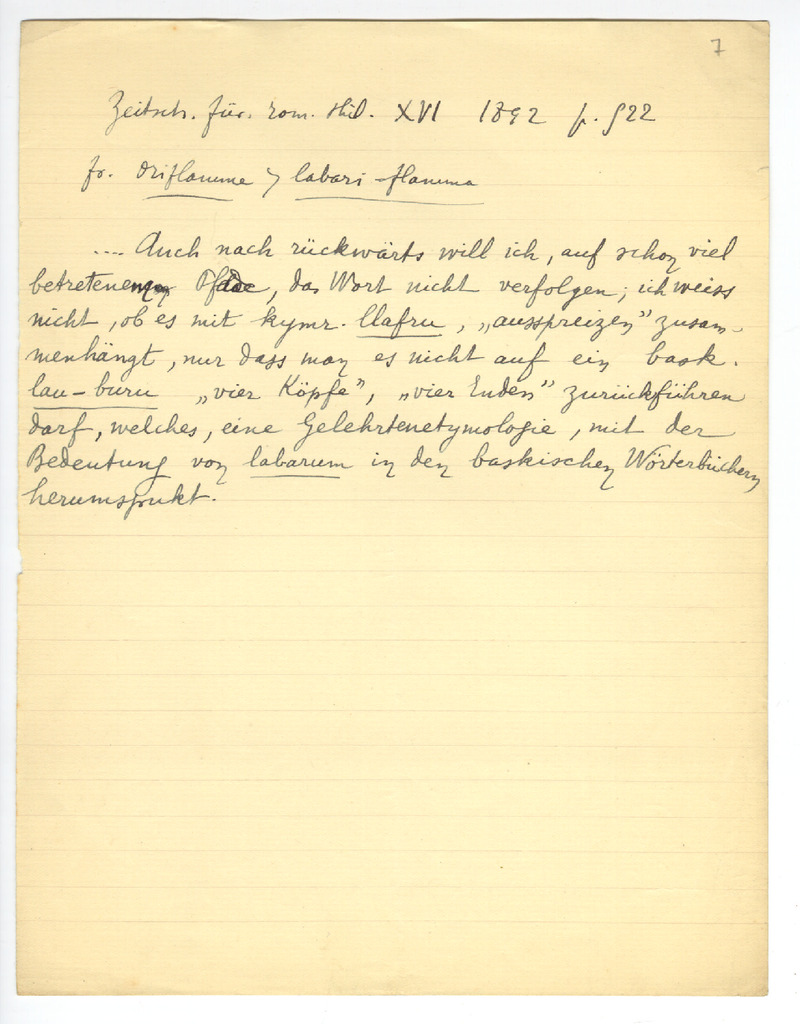 7
Zeitsch. für. rom. Phil. XVI 1892 p. 522
fr. oriflamme > labari-flamma
.... Auch nach rückwärts will ich, auf schon viel
betretenem Pfade, das Wort nicht verfolgen; ich weiss
nicht, ob es mit kymr. llafru, „ausspreizen” zusam-
menhängt, nur dass man es nicht auf ein bask.
lau-buru „vier Köpfe”, „vier Enden” zurückführen
darf, welches, eine Gelehrtenetymologie, mit der
Bedeutung von labarum in den baskischen Wörterbüchern
herumspukt.